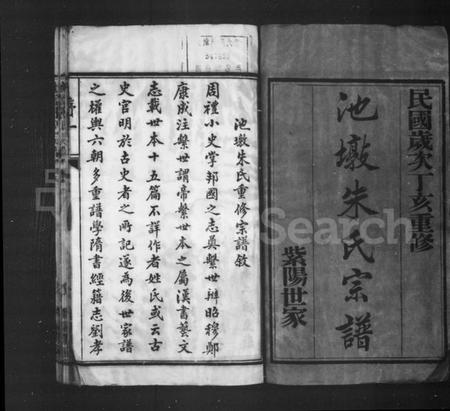 民國歲次丁亥重修
池墩朱氏宗譜
紫陽世家
池墩朱氏重修宗譜敘
周禮小史掌邦國之志奠繫世辨昭穆鄭
康成注繫世謂帝繫世本之屬漢書藝文
志載世本十五篇不詳作者姓氏或云古
史官明於古史者之所記遂為後世家譜
之權輿六朝多重譜學隋書經籍志劉孝
Search